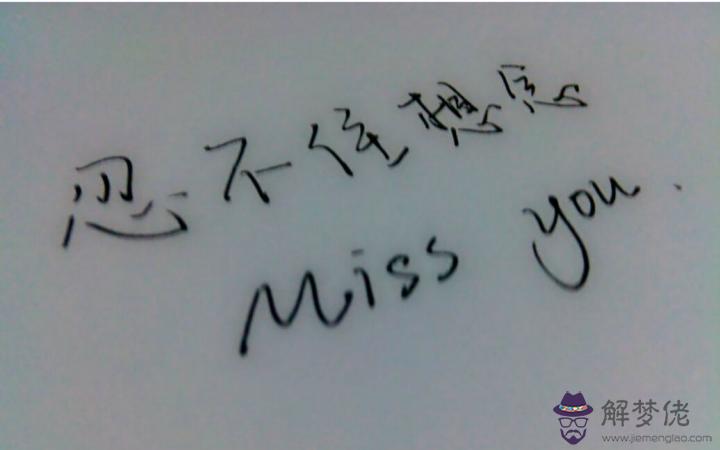 忍不住想您
Miss you.
解梦佬
www.jiemenglao.com